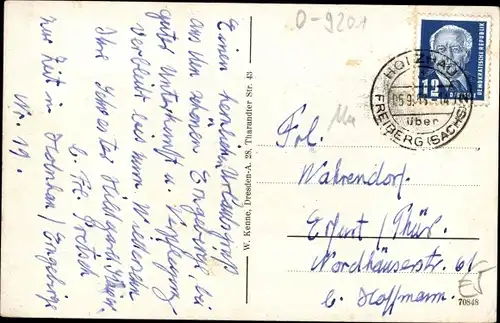 D-9201
Einen herrlichen Urlaubsgruß
aus dem schönen Erzgebirge, bei
guter Unterkunft u. Verpflegung
verbleibt bis zum Wiedersehn
Ihre Schwester Hildegard
b. Frl.
zur Zeit in Holzhau / Erzgebirge
Nr. 19.
W. Kenne, Dresden-A. 28, Tharandter Str. 43
HOLZHAU
über
FREIBERG (SACHS)
DEUTSCHE
DEMOKRATISCHE REPUBLIK
12
Frl.
Wahrendorf.
Erfurt / Thür.
Nordhäuserstr. 61
b. Hoffmann.
70848